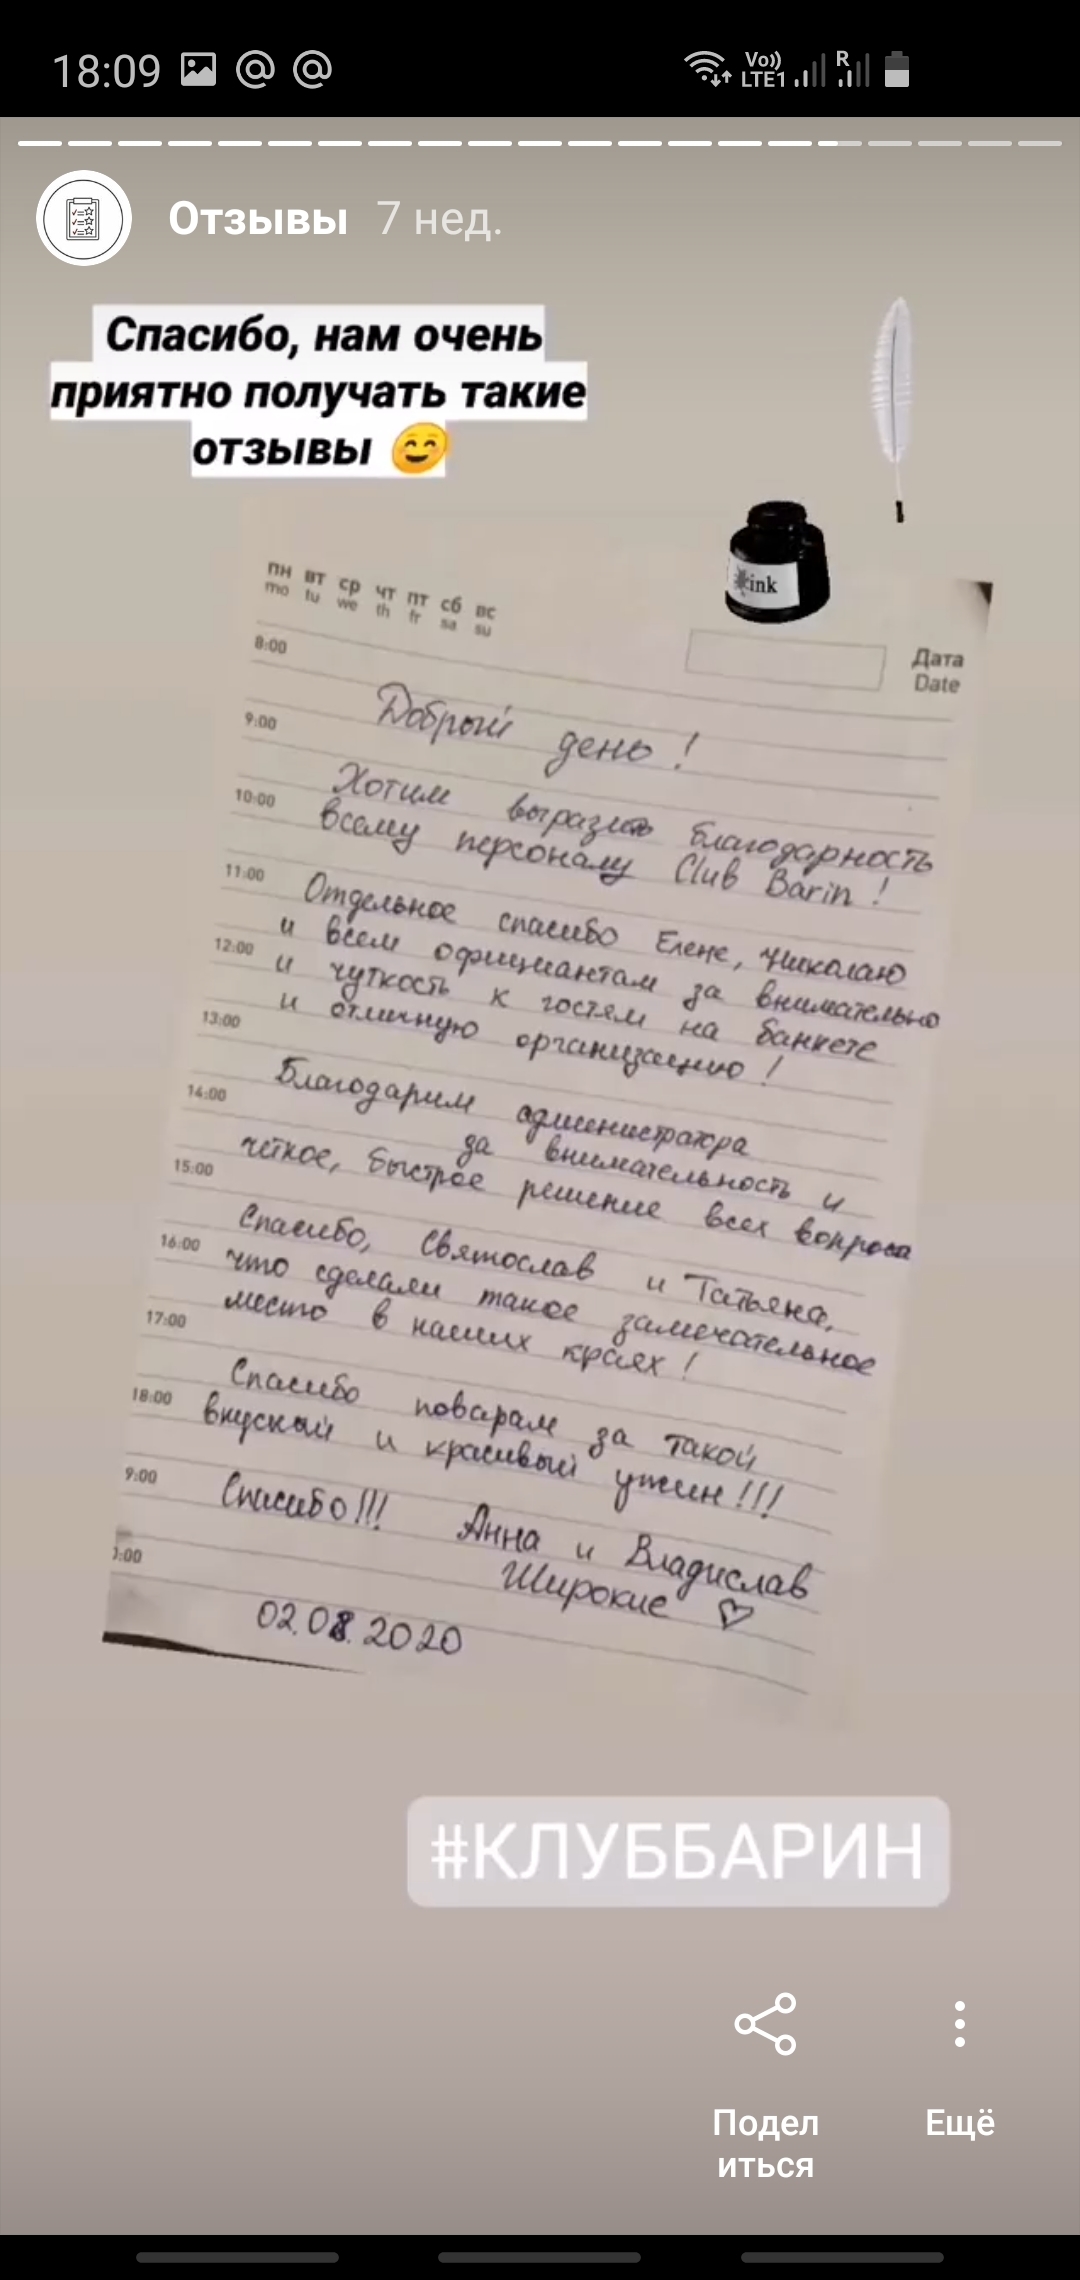 18:09
Vo))
LTE1
R
Отзывы 7 нед.
Спасибо, нам очень
приятно получать такие
отзывы 😊
ink
пн вт ср чт пт сб вс
mo tu we th fr sa su
Дата
Date
8:00
Добрый день!
9:00
Хотим выразить благодарность
10:00
всему персоналу Club Barin!
11:00
Отдельное спасибо Елене, Николаю
и всем официантам за внимательно
12:00
и чуткость к гостям на банкете
и отличную организацию!
13:00
Благодарим администратора
14:00
за внимательность и
чёткое, быстрое решение всех вопроса
15:00
Спасибо, Святослав и Татьяна,
16:00
что сделали такое замечательное
место в наших краях!
17:00
Спасибо поварам за такой
18:00
вкусный и красивый ужин!!!
9:00
Спасибо!!! Анна и Владислав
Широкие ♡
0:00
02.08.2020
#КЛУББАРИН
Подел
иться
Ещё